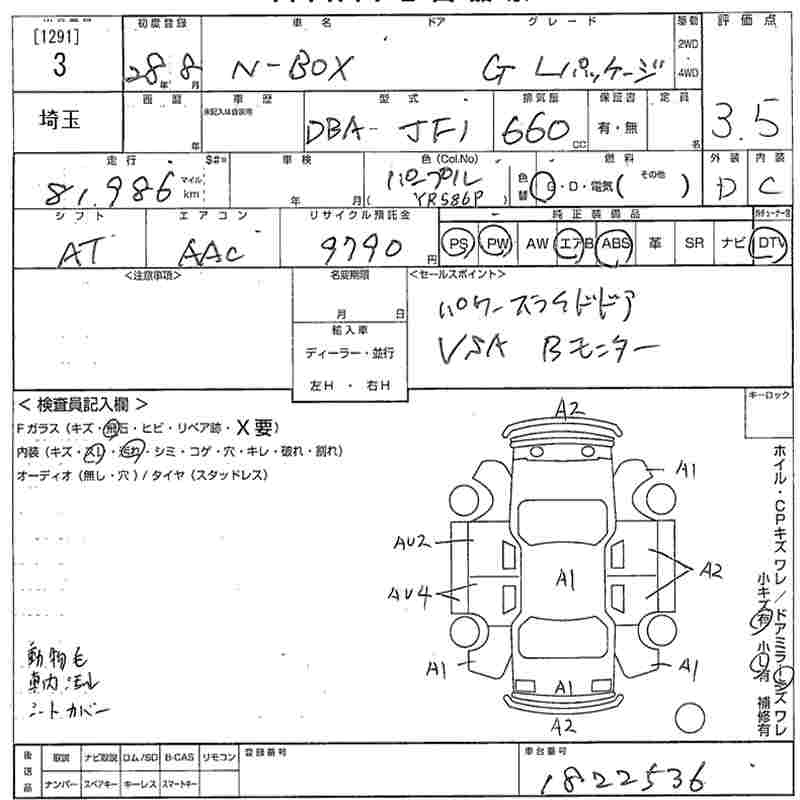 [1291]
初度登録 車名 ドア グレード 駆動 評価点
3 28年8月 N-BOX G Lパッケージ 2WD・4WD 3.5
西暦 車歴 型式 排気量 保証書 定員
埼玉 年 未記入は自家用 DBA-JF1 660cc 有・無 名
走行 車検 色(Col.No) 燃料 外装 内装
81,986 マイル km 年 月 パープル ( YR586P ) 色替 G・D・電気( その他 ) D C
シフト エアコン リサイクル預託金 純正装備品
AT AAC 9790円 PS PW AW エアB ABS 革 SR ナビ DTV
<注意事項> 名変期限 <セールスポイント>
月 日 パワースライドドア
輸入車 VSA Bモニター
ディーラー・並行
左H・右H
<検査員記入欄> キーロック
Fガラス(キズ・飛石・ヒビ・リペア跡・X要)
内装(キズ・スレ・汚れ・シミ・コゲ・穴・キレ・破れ・割れ)
オーディオ(無し・穴)/タイヤ(スタッドレス)
A2
A1
AU2
A1
A2
AU4
A1
A1
A1
A2
ホイル・CPキズワレ/ドアミラーキズワレ
小キズ有 小凹有 補修有
動物毛
シートカバー
後送品 取説 ナビ取説 ロム/SD B-CAS リモコン 登録番号 車台番号
ナンバー スペアキー キーレス スマートキー 1822536